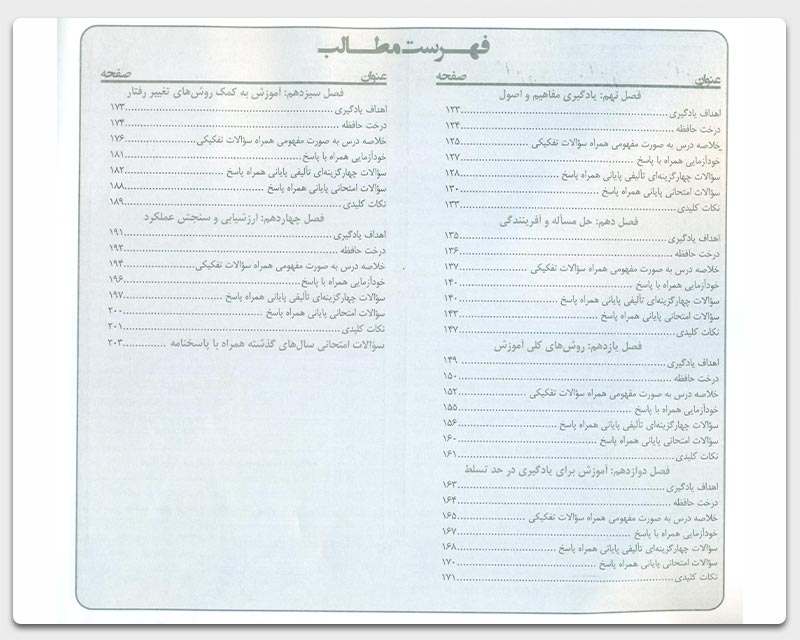 فهرست مطالب
عنوان صفحه
فصل نهم: یادگیری مفاهیم و اصول
اهداف یادگیری ۱۲۳
درخت حافظه ۱۲۴
خلاصه درس به صورت مفهومی همراه سؤالات تفکیکی ۱۲۵
خودآزمایی همراه با پاسخ ۱۲۷
سؤالات چهارگزینه‌ای تألیفی پایانی همراه پاسخ ۱۲۸
سؤالات امتحانی پایانی همراه پاسخ ۱۳۰
نکات کلیدی ۱۳۳
فصل دهم: حل مسأله و آفرینندگی
اهداف یادگیری ۱۳۵
درخت حافظه ۱۳۶
خلاصه درس به صورت مفهومی همراه سؤالات تفکیکی ۱۳۷
خودآزمایی همراه با پاسخ ۱۴۰
سؤالات چهارگزینه‌ای تألیفی پایانی همراه پاسخ ۱۴۰
سؤالات امتحانی پایانی همراه پاسخ ۱۴۳
نکات کلیدی ۱۴۷
فصل یازدهم: روش‌های کلی آموزش
اهداف یادگیری ۱۴۹
درخت حافظه ۱۵۰
خلاصه درس به صورت مفهومی همراه سؤالات تفکیکی ۱۵۲
خودآزمایی همراه با پاسخ ۱۵۵
سؤالات چهارگزینه‌ای تألیفی پایانی همراه پاسخ ۱۵۶
سؤالات امتحانی پایانی همراه پاسخ ۱۶۰
نکات کلیدی ۱۶۱
فصل دوازدهم: آموزش برای یادگیری در حد تسلط
اهداف یادگیری ۱۶۳
درخت حافظه ۱۶۴
خلاصه درس به صورت مفهومی همراه سؤالات تفکیکی ۱۶۵
خودآزمایی همراه با پاسخ ۱۶۷
سؤالات چهارگزینه‌ای تألیفی پایانی همراه پاسخ ۱۶۸
سؤالات امتحانی پایانی همراه پاسخ ۱۷۰
نکات کلیدی ۱۷۱
عنوان صفحه
فصل سیزدهم: آموزش به کمک روش‌های تغییر رفتار
اهداف یادگیری ۱۷۳
درخت حافظه ۱۷۴
خلاصه درس به صورت مفهومی همراه سؤالات تفکیکی ۱۷۶
خودآزمایی همراه با پاسخ ۱۸۱
سؤالات چهارگزینه‌ای تألیفی پایانی همراه پاسخ ۱۸۲
سؤالات امتحانی پایانی همراه پاسخ ۱۸۸
نکات کلیدی ۱۸۹
فصل چهاردهم: ارزشیابی و سنجش عملکرد
اهداف یادگیری ۱۹۱
درخت حافظه ۱۹۲
خلاصه درس به صورت مفهومی همراه سؤالات تفکیکی ۱۹۴
خودآزمایی همراه با پاسخ ۱۹۶
سؤالات چهارگزینه‌ای تألیفی پایانی همراه پاسخ ۱۹۷
سؤالات امتحانی پایانی همراه پاسخ ۲۰۰
نکات کلیدی ۲۰۱
سؤالات امتحانی سال‌های گذشته همراه با پاسخنامه ۲۰۳